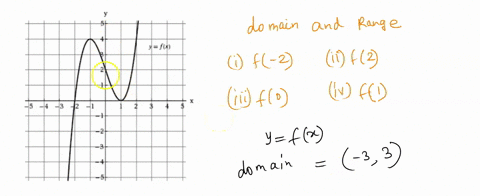 y
5
4
3
2
1
y = f(x)
-5 -4 -3 -2 -1 1 2 3 4 5 x
-1
-2
-3
-4
-5
domain and Range
(i) f(-2) (ii) f(2)
(iii) f(0) (iv) f(1)
y = f(x)
domain = (-3, 3)